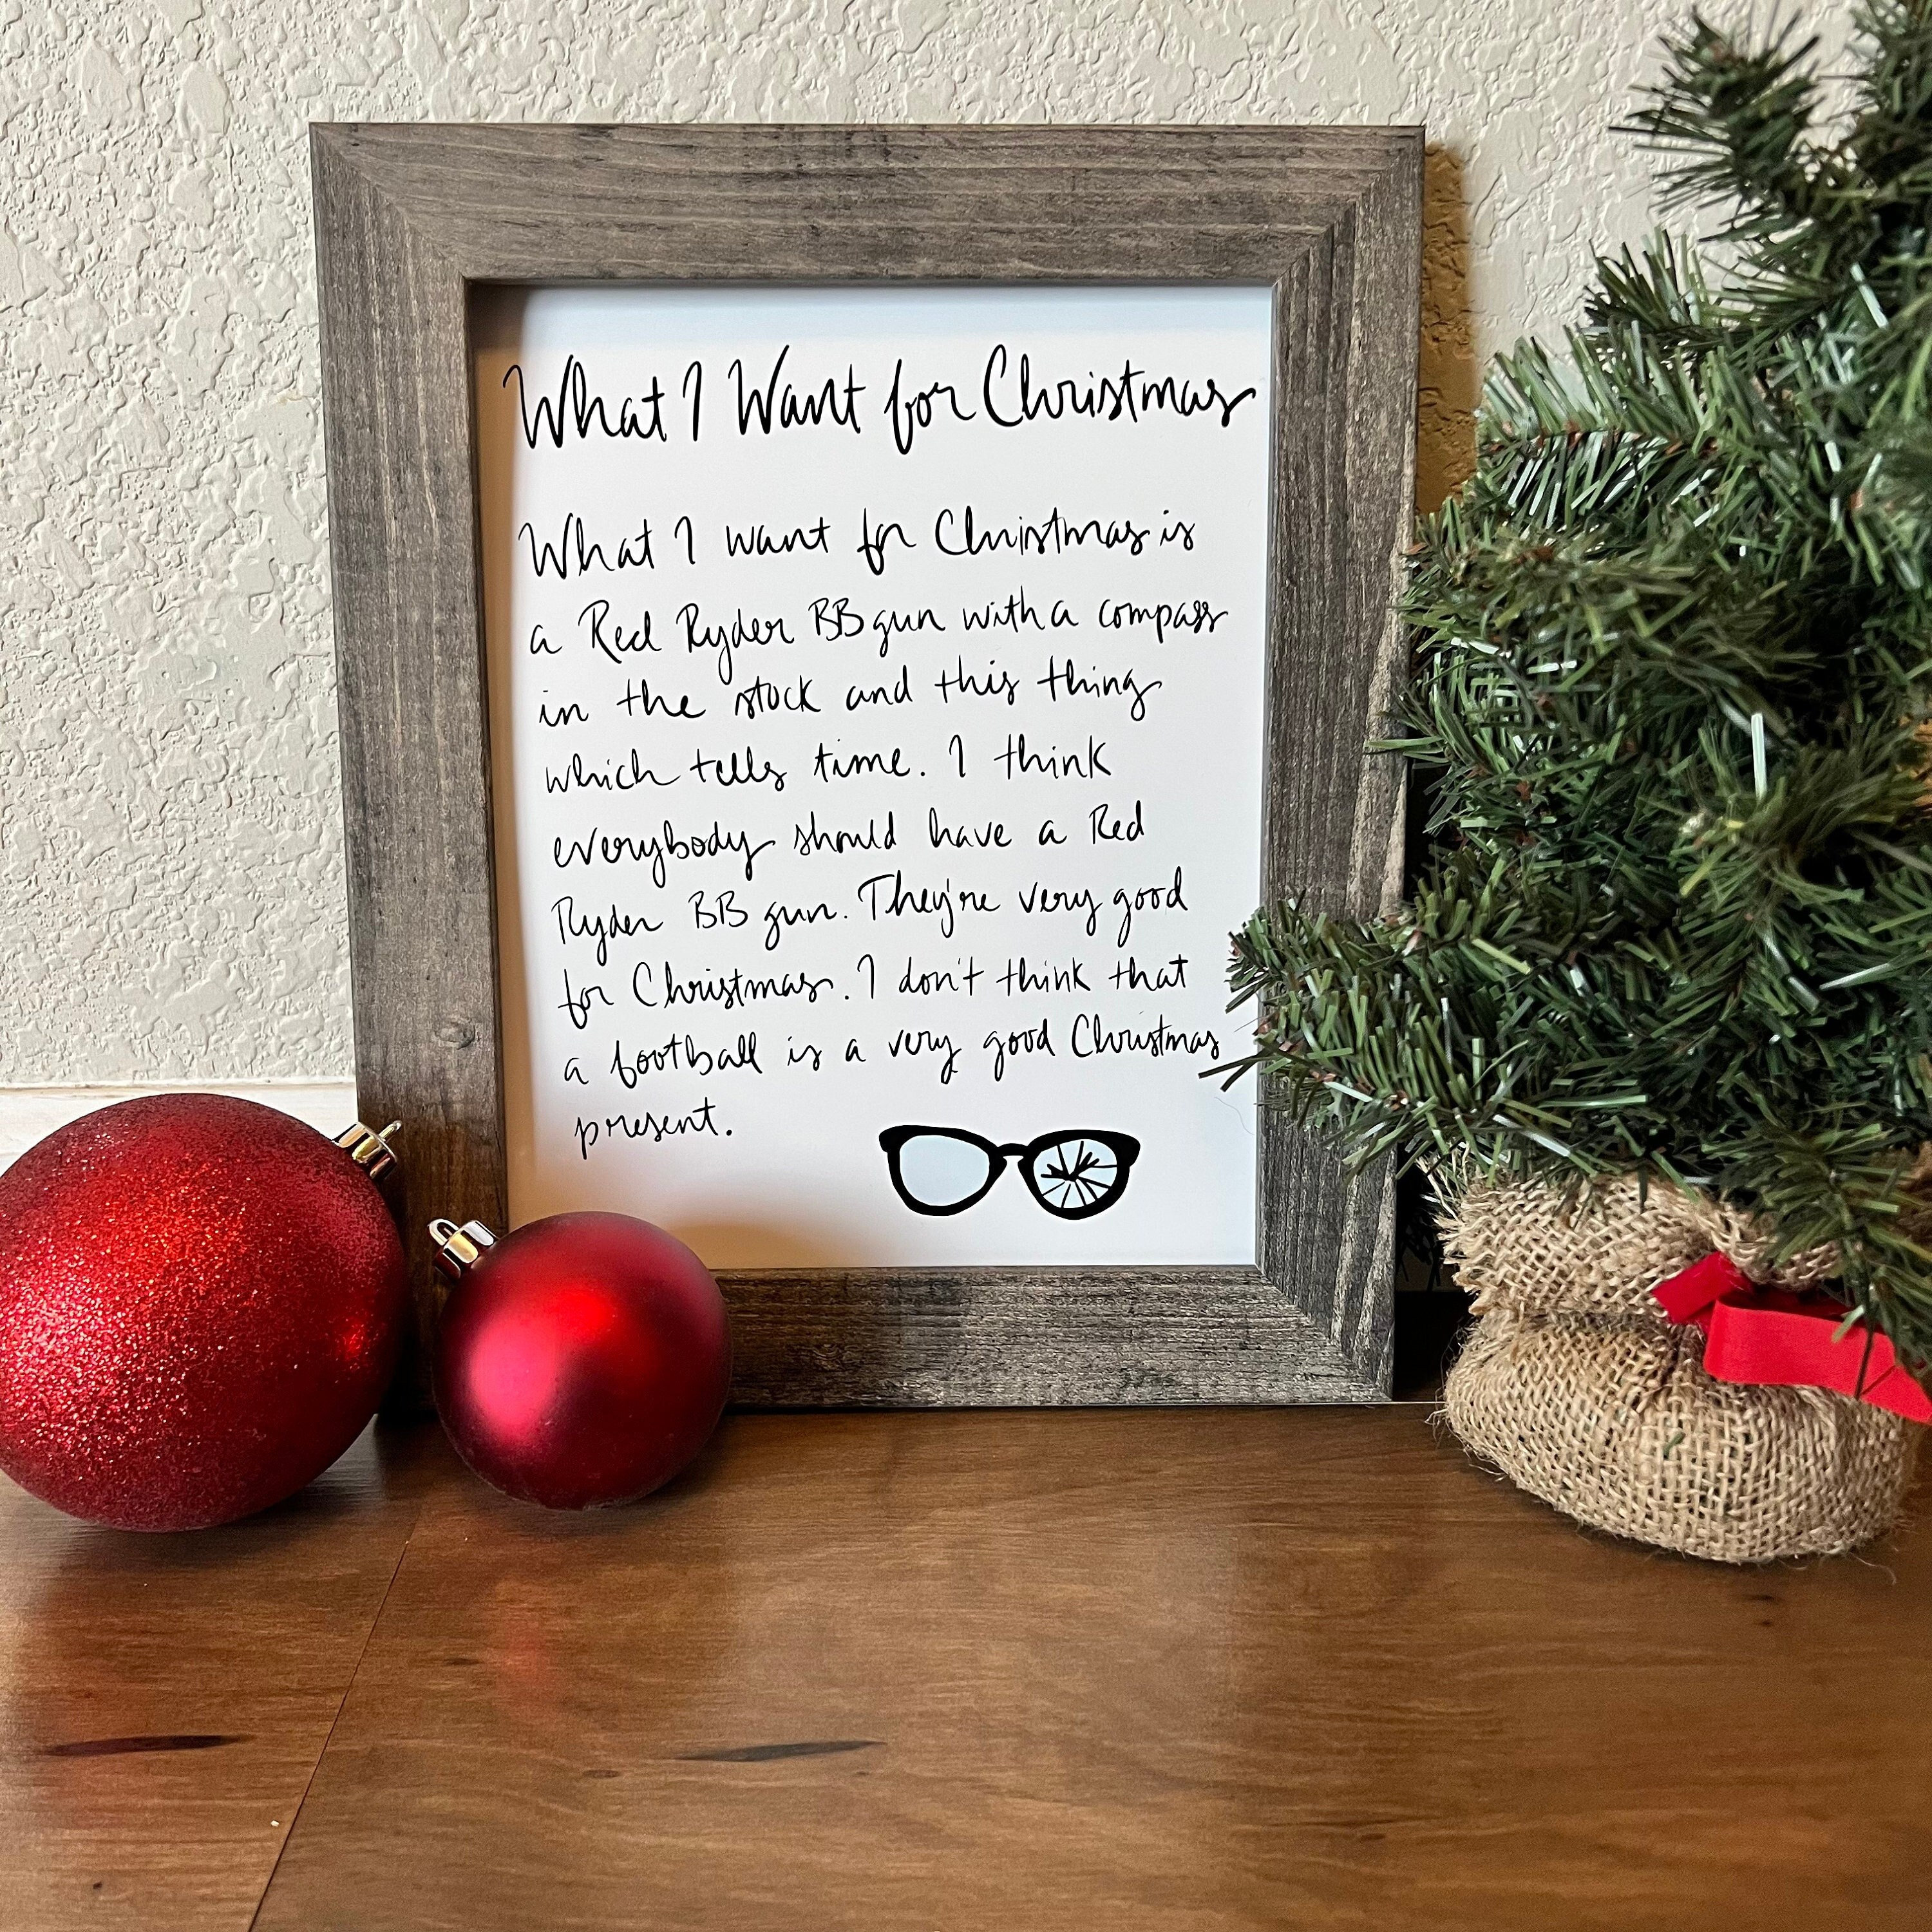 What I Want for Christmas
What I want for Christmas is
a Red Ryder BB gun with a compass
in the stock and this thing
which tells time. I think
everybody should have a Red
Ryder BB gun. They're very good
for Christmas. I don't think that
a football is a very good Christmas
present.